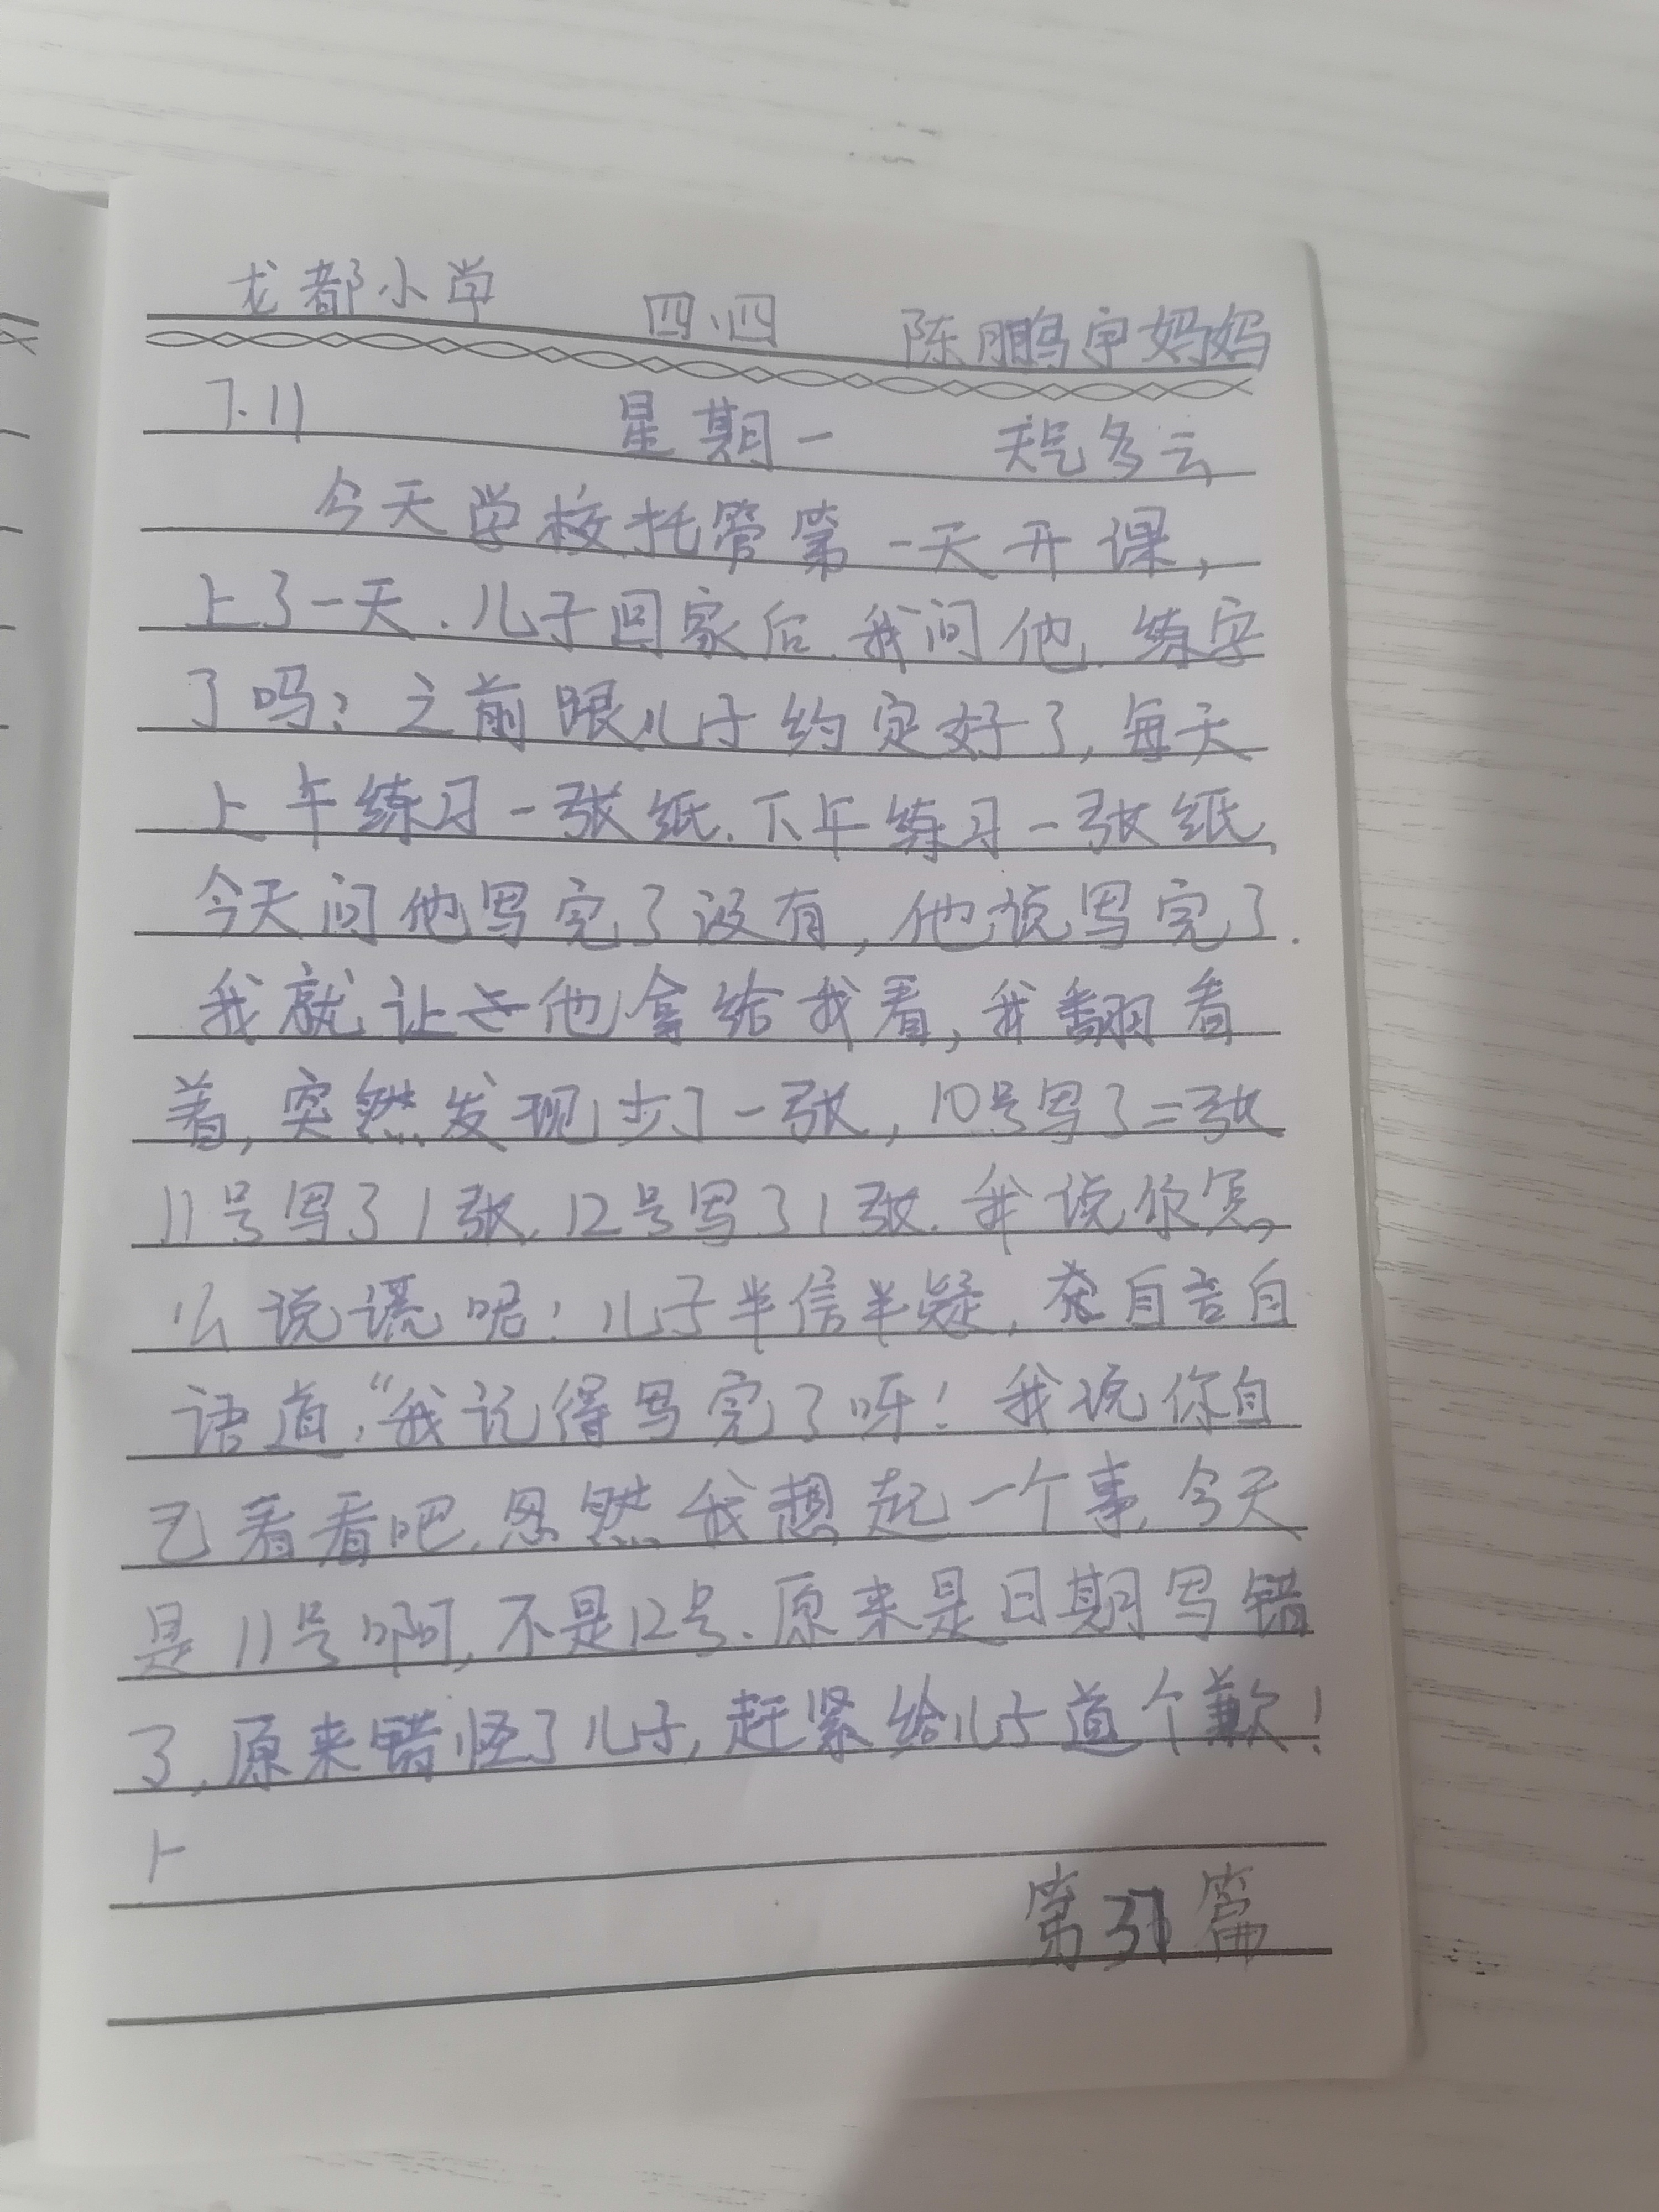 龙都小学 四、四 陈鹏宇妈妈
7.11 星期一 天气多云
今天学校托管第一天开课,
上了一天.儿子回家后.我问他.练字
了吗?之前跟儿子约定好了,每天
上午练习一张纸.下午练习一张纸,
今天问他写完了没有,他说写完了.
我就让他拿给我看,我翻看
着,突然发现少了一张,10号写了二张
11号写了1张,12号写了1张.我说你怎
么说谎呢!儿子半信半疑,自言自
语道,“我记得写完了呀!我说你自
己看看吧.忽然我想起一个事,今天
是11号啊,不是12号.原来是日期写错
了,原来错怪了儿子,赶紧给儿子道个歉!
第31篇